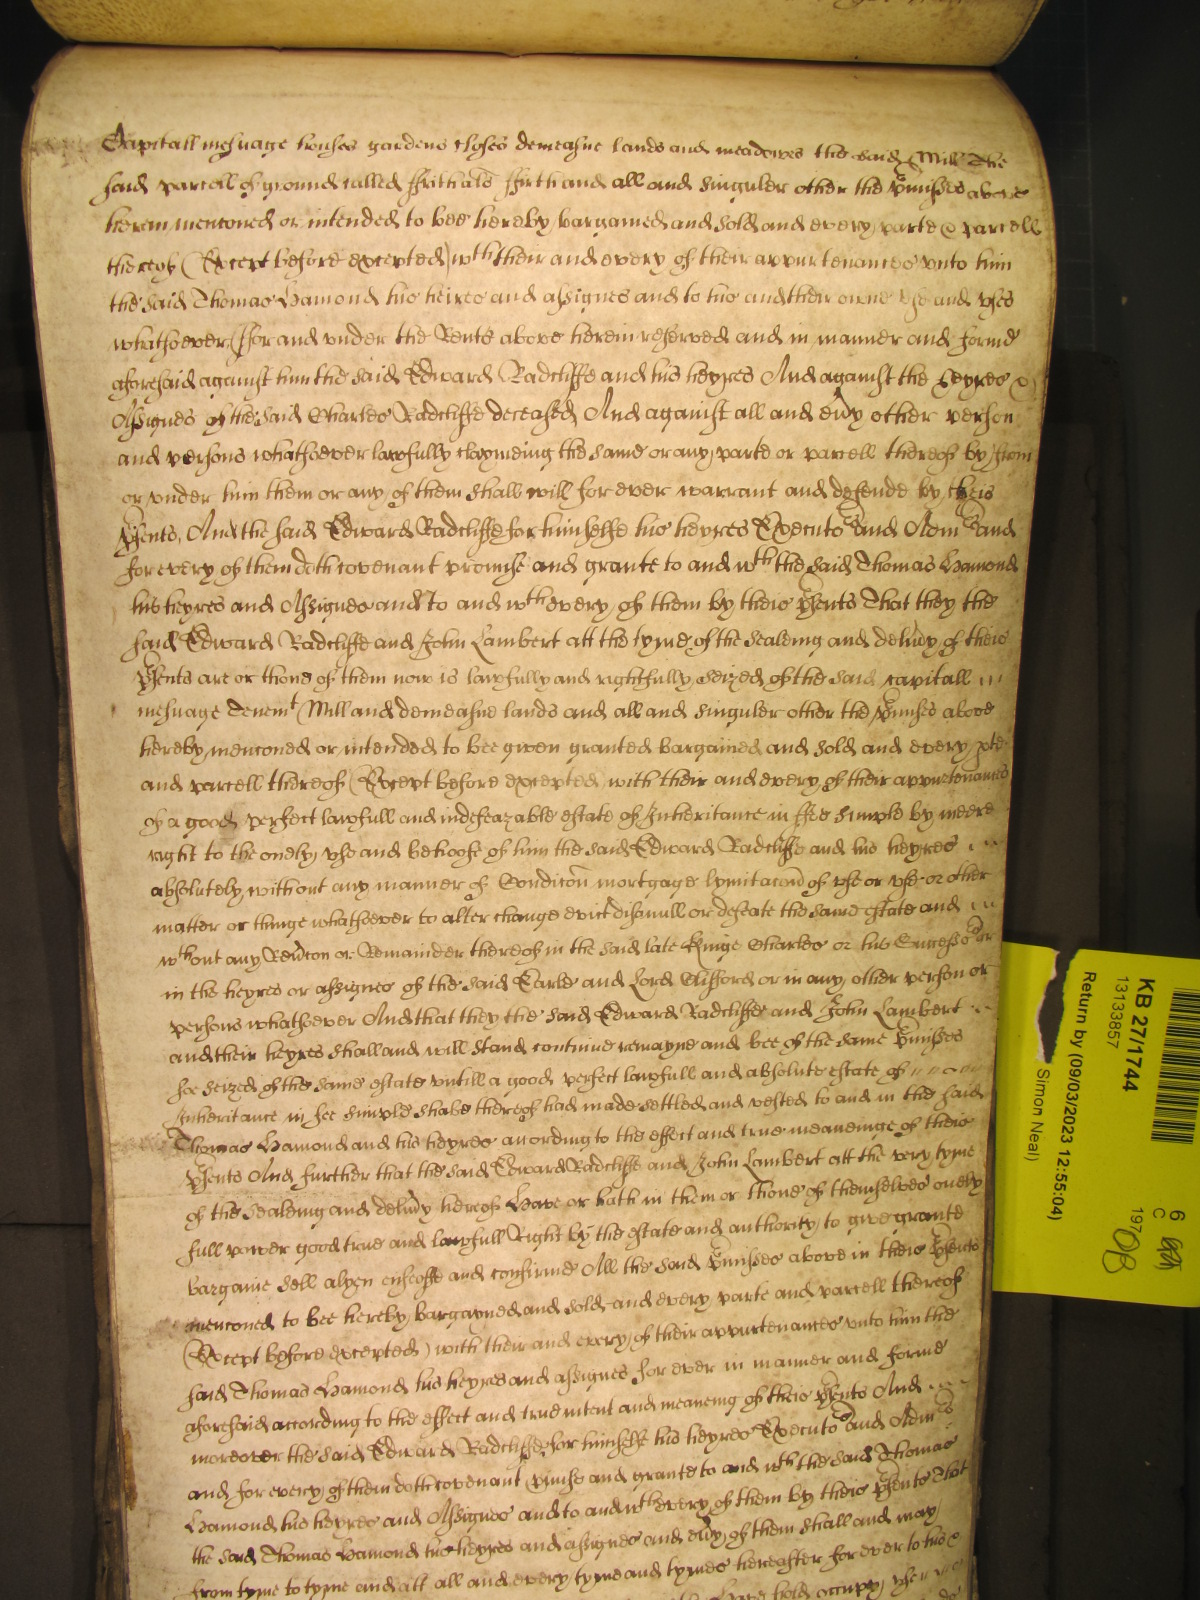 Capitall mesuage houses gardens closes demeasne lands and meadowes the said Mill The
said parcell of ground called ffrithale ffirth and all and singuler other the p̱misses above
herein menconed or intended to bee hereby bargained and sold and every parte & parcell
thereof (Except before excepted) wth their and every of their appurtenances unto him
the said Thomas Hamond his heires and assignes and to his and their owne use and uses
whatsoever, ffor and under the Rents above herein reserved and in manner and forme
aforesaid against him the said Edward Radcliffe and his heyres And against the heyres &
Assignes of the said Charles Radcliffe deceased And against all and ev̄y other person
and persons whatsoever lawfully claymeing the same or any parte or parcell thereof by from
or under him them or any of them shall will for ever warrant and defende by theis
p̱sents, And the said Edward Radcliffe for himselfe his heyres Executors and Admrs and
for every of them doth covenant promise and grante to and wth the said Thomas Hamond
his heyres and Assignes and to and wth every of them by theis p̱sents That they the
said Edward Radcliffe and John Lambert att the tyme of the sealeing and deliv̄y of theis
p̱sents are or thone of them now is lawfully and rightfully seized of the said capitall
mesuage Tenemt Mill and demeasne lands and all and singuler other the p̱misses above
hereby menconed or intended to bee given granted bargained and sold and every p̱te
and parcell thereof (Except before excepted) with their and every of their appurtenances
of a good perfect lawfull and indefeazable estate of Inheritance in ffee simple by meere
right to the onely use and behoofe of him the said Edward Radcliffe and his heyres
absolutely without any manner of Condicōn mortgage lymitacōn of use or uses or other
matter or thinge whatsoever to alter change evict disanull or defeate the same estate and
wthout any Rev̄con or Remainder thereof in the said late Kinge Charles or his Successors or
in the heyres or assignes of the said Earle and Lord Clifford or in any other person or
persons whatsoever And that they the said Edward Radcliffe and John Lambert
and their heyres shall and will stand continue remayne and bee of the same p̱misses
soe seized of the same estate untill a good perfect lawfull and absolute estate of
Inheritance in fee simple shalbe thereof had made settled and vested to and in the said
Thomas Hamond and his heyres according to the effect and true meaneinge of theis
p̱sents And further that the said Edward Radcliffe and John Lambert att the very tyme
of the sealeing and deliv̄y hereof Have or hath in them or thone of themselves onely
full power good true and lawfull Right by the estate and authority to give grante
bargaine sell alyen enfeoffe and confirme All the said p̱misses above in theis p̱sents
menconed to bee hereby bargayned and sold and every parte and parcell thereof
(Except before excepted) with their and every of their appurtenances unto him the
said Thomas Hamond his heyres and assignes for ever in manner and forme
aforesaid according to the effect and true intent and meaneing of theis p̱sents And
moreover the said Edward Radcliffe for himselfe his heyres Executors and Admrs
and for every of them doth covenant p̱mise and grante to and wth the said Thomas
Hamond his heyres and Assignes and to and wth every of them by theis p̱sents That
the said Thomas Hamond his heyres and assignes and ev̄y of them shall and may
from tyme to tyme and att all and every tyme and tymes hereafter for ever to his &
Have hold occupy use
KB 27/1744
13133857
Return by (09/03/2023 12:55:04)
Simon Neal)
6
C
197